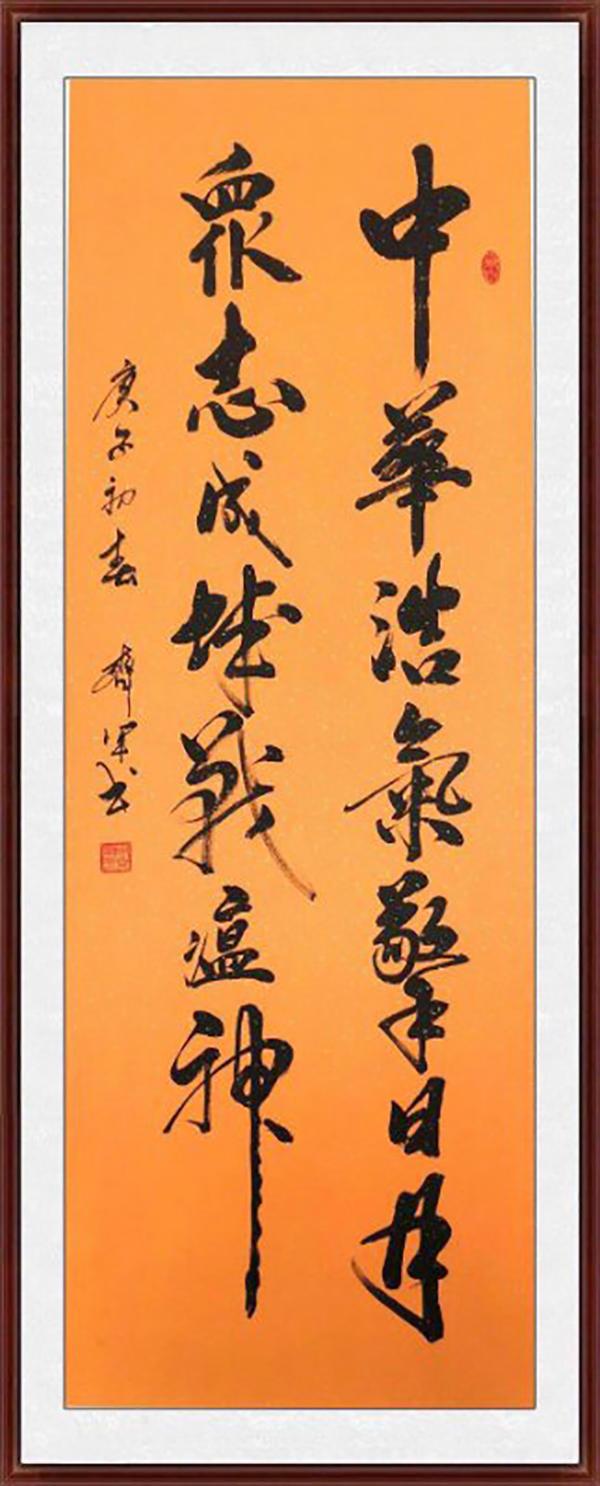 中華浩氣擎日月
眾志成城戰瘟神
庚子初春 軍書